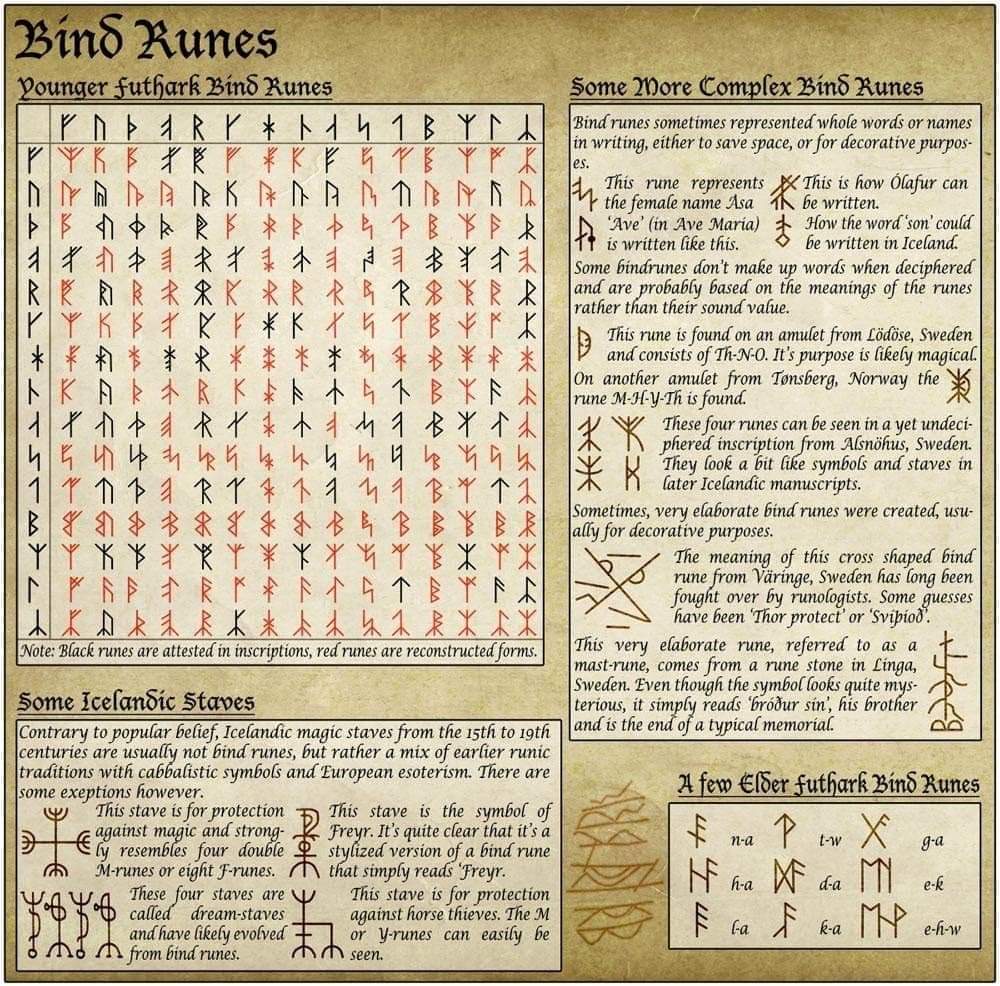 Bind Runes
Younger Futhark Bind Runes
Note: Black runes are attested in inscriptions, red runes are reconstructed forms.
Some Icelandic Staves
Contrary to popular belief, Icelandic magic staves from the 15th to 19th
centuries are usually not bind runes, but rather a mix of earlier runic
traditions with cabbalistic symbols and European esoterism. There are
some exeptions however.
This stave is for protection
against magic and strong-
ly resembles four double
M-runes or eight F-runes.
This stave is the symbol of
Freyr. It's quite clear that it's a
stylized version of a bind rune
that simply reads 'Freyr.
These four staves are
called dream-staves
and have likely evolved
from bind runes.
This stave is for protection
against horse thieves. The M
or Y-runes can easily be
seen.
Some More Complex Bind Runes
Bind runes sometimes represented whole words or names
in writing, either to save space, or for decorative purpos-
es.
This rune represents
the female name Asa
This is how Ólafur can
be written.
'Ave' (in Ave Maria)
is written like this.
How the word 'son' could
be written in Iceland.
Some bindrunes don't make up words when deciphered
and are probably based on the meanings of the runes
rather than their sound value.
This rune is found on an amulet from Lödöse, Sweden
and consists of Th-N-O. It's purpose is likely magical.
On another amulet from Tønsberg, Norway the
rune M-H-Y-Th is found.
These four runes can be seen in a yet undeci-
phered inscription from Alsnöhus, Sweden.
They look a bit like symbols and staves in
later Icelandic manuscripts.
Sometimes, very elaborate bind runes were created, usu-
ally for decorative purposes.
The meaning of this cross shaped bind
rune from Väringe, Sweden has long been
fought over by runologists. Some guesses
have been 'Thor protect' or 'Sviþioð'.
This very elaborate rune, referred to as a
mast-rune, comes from a rune stone in Linga,
Sweden. Even though the symbol looks quite mys-
terious, it simply reads 'bróður sin', his brother
and is the end of a typical memorial.
A few Elder Futhark Bind Runes
n-a t-w g-a
h-a d-a e-k
l-a k-a e-h-w